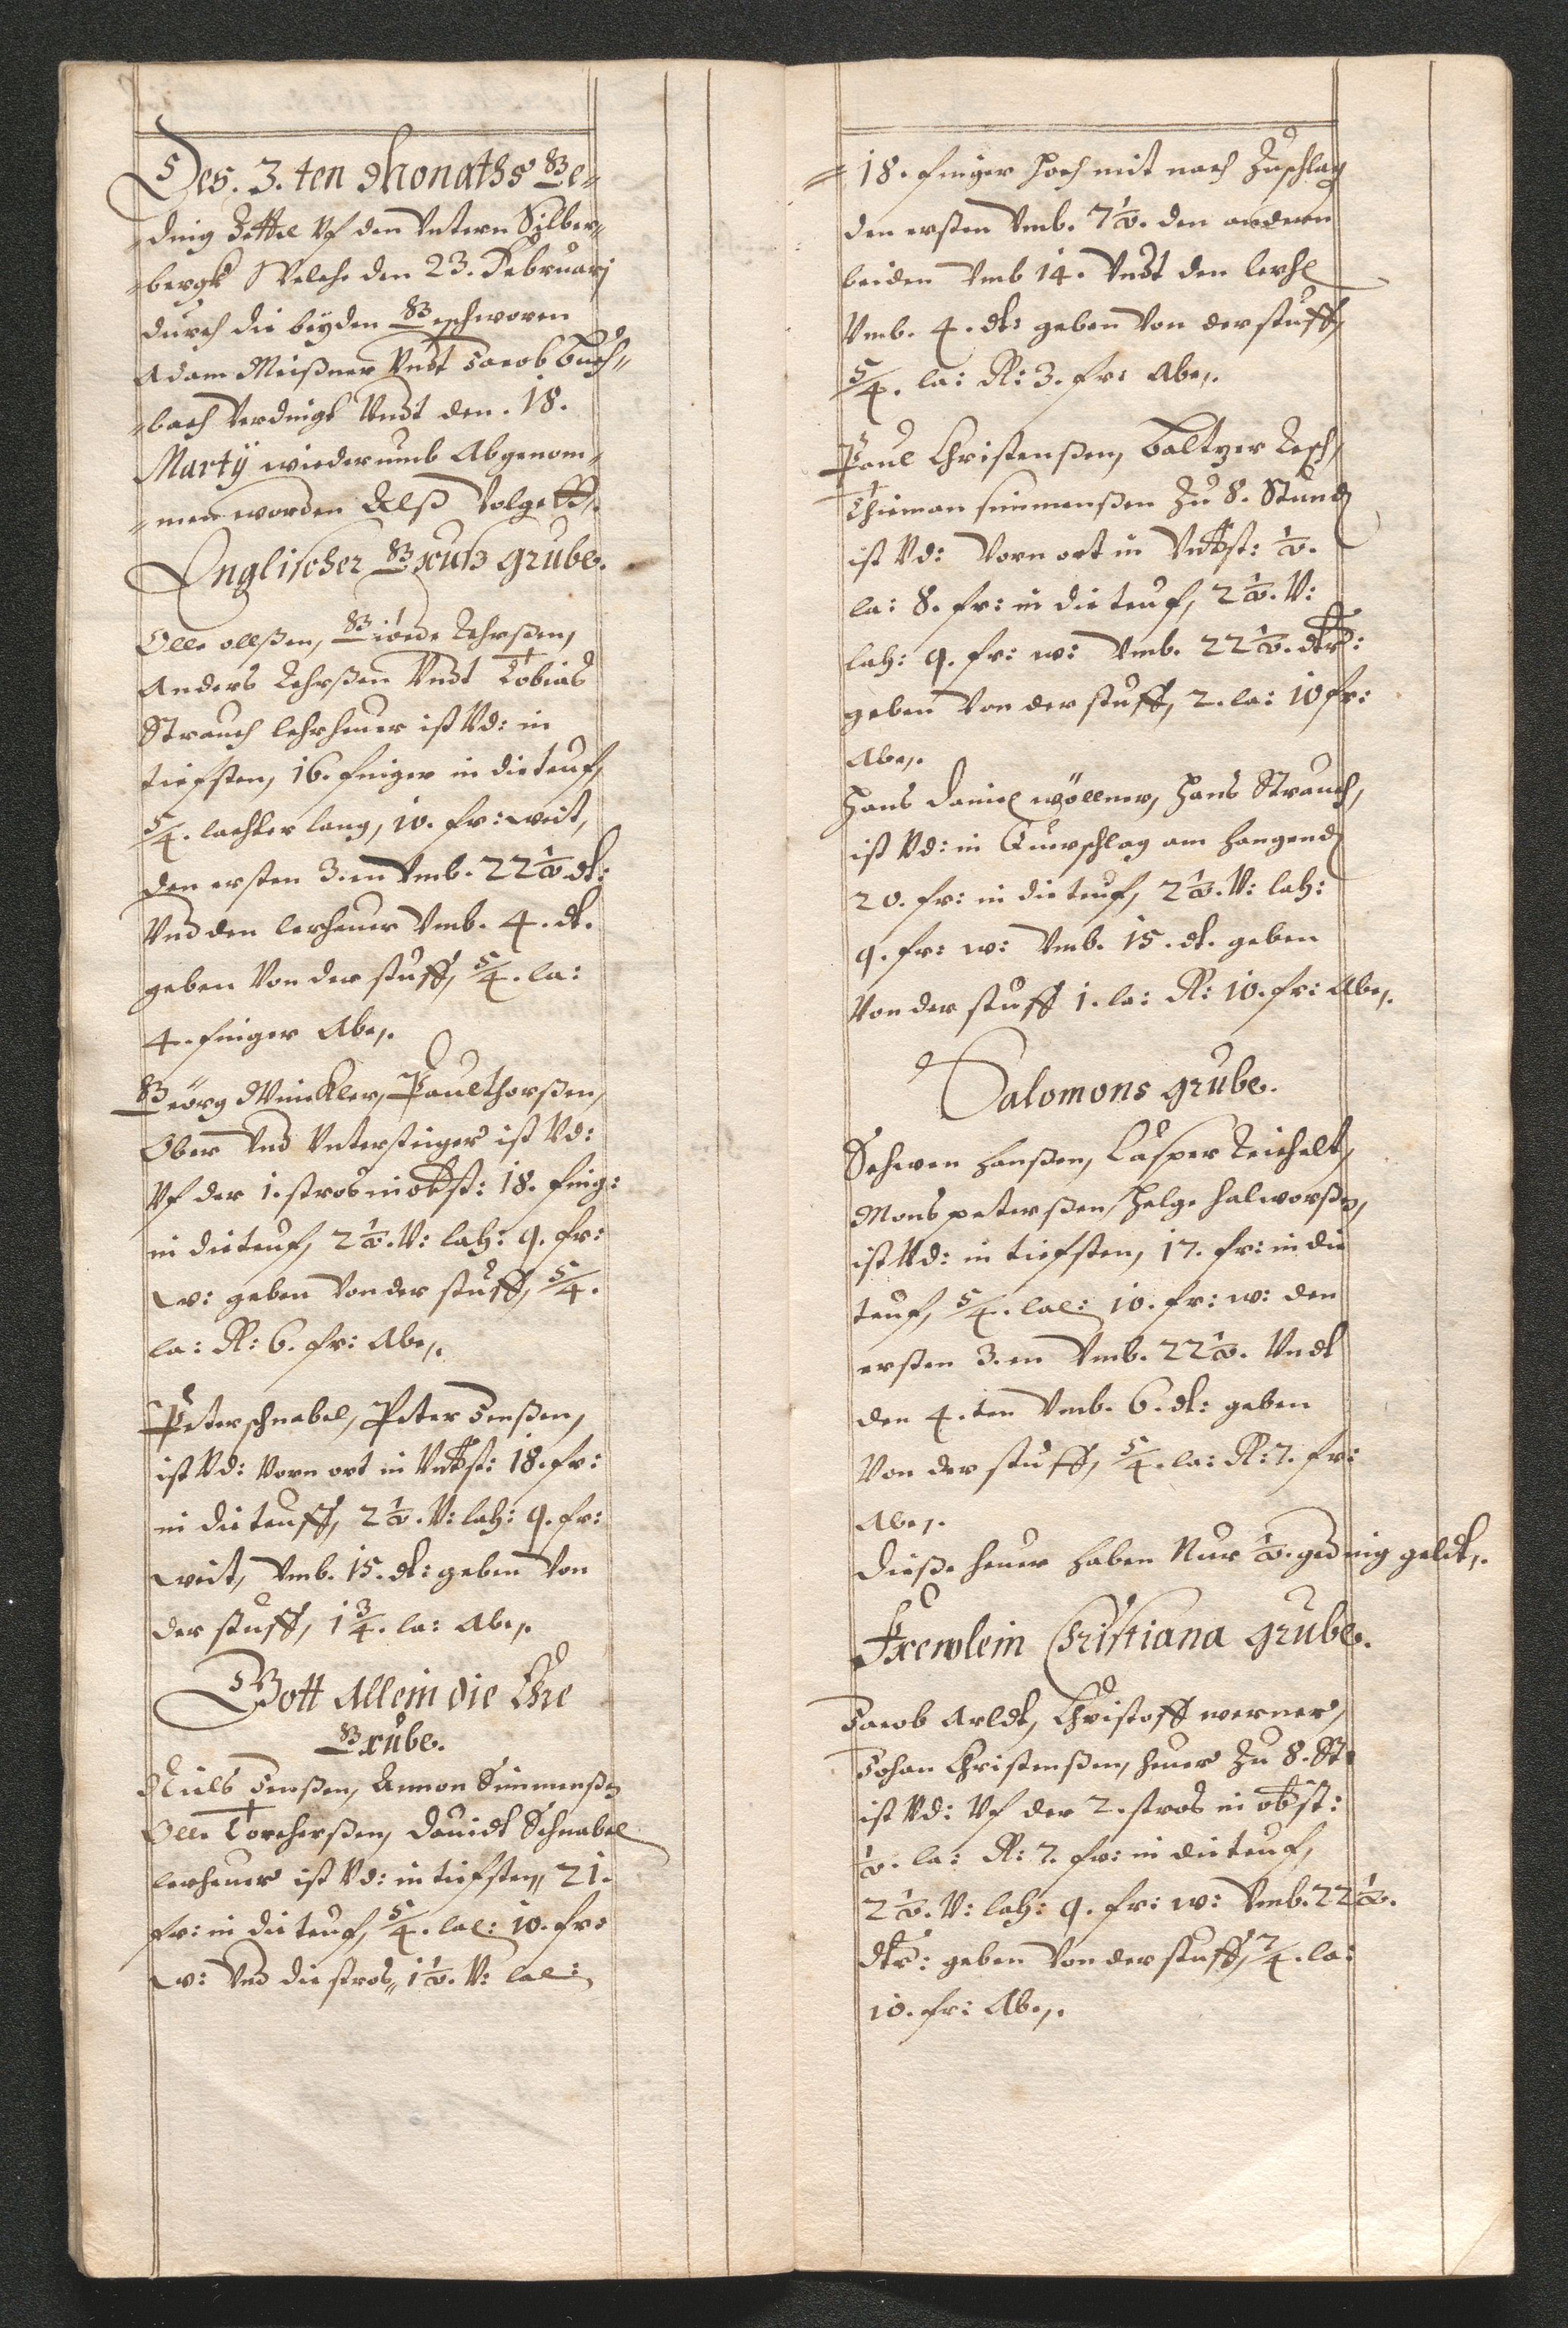 Des. 3. ten Monaths Ge-
-ding Zettel Vf den Vntern Silber-
-bergk Welche den 23. Februarj
durch die beyden Geschworen
Adam Meißner Vndt Jacob Buch-
-bach Verdingt Vndt den. 18.
Martÿ wiederumb Abgenom-
-men worden Alß Volgett.
Englischer Gruß grube.
Olle ollßen, Giöede Lehrßen,
Anders Lehrßen Vndt Tobias
Strauch lehrheuer ist Vd: in
tiefsten, 16. finger in die teuf,
5/4. lachter lang, 10. fr: weit,
den ersten 3.en Vmb. 22 1/2 dl:
Vnd den lerheuer Vmb. 4. dl.
geben Von der stuff, 5/4. la:
4. finger Abe.
Geörg Winckler, Paul thorßen,
Ober Vnd Vntersteiger ist Vd:
Vf der 1. stros in obst: 18. fing:
in die teuf, 2 1/2. V: lah: 9. fr:
w: geben Von der stuff, 5/4.
la: R: 6. fr: Abe.
Peter schnabel, Peter Jenßen,
ist Vd: Vorn ort in Vntst: 18. fr:
in die teuff, 2 1/2. V: lah: 9. fr:
weit, Vmb. 15. dl: geben Von
der stuff, 1 3/4. la: Abe.
Gott Allein die Ehre
Grube.
Niels Jenßen, Ammon Simmenßen
Olle Torcherßen, Dauidt Schnabel
lerheuer ist Vd: in tiefsten, 21.
fr: in die teuf, 5/4. lal: 10. fr:
w: Vnd die stros, 1 1/2. V: lal:
-18. finger hoch mit nach Zuschlag
den ersten Vmb. 7 1/2. den andern
beiden Vmb 14. Vndt den lerhl
Vmb. 4. dl: geben Von der stuff,
5/4. la: R: 3. fr: Abe.
Paul Christenßen, Baltzer Resch,
Thieman simmenßen Zu 8. Stund
ist Vd: Vorn ort in Vntst: 1/2.
la: 8. fr: in die teuf, 2 1/2. V:
lah: 9. fr: w: Vmb. 22 1/2. dlr:
geben Von der stuff, 2. la: 10 fr:
Abe.
Hans Daniel wöllner, Hans Strauch,
ist Vd: in Querschlag am hangend
20. fr: in die teuf, 2 1/2. V: lah:
9. fr: w: Vmb. 15. dl. geben
Von der stuff 1. la: R: 10. fr: Abe.
Salomons grube.
Sehwen hanßen, Casper Reichelt,
Mons peterßen, Helge halworßen,
ist Vd: in tiefsten, 17. fr: in die
teuf, 5/4. lal: 10. fr: w: den
ersten 3.en Vmb. 22 1/2. Vndt
den 4.ten Vmb. 6. dl: geben
Von der stuff, 5/4. la: R: 7. fr:
Abe.
Dieße heuer haben Nur 1/2. geding geldt.
Frewlein Christiana grube.
Jacob Arldt, Christoff werner,
Johan Christenßen, heuer Zu 8. St:
ist Vd: Vf der 2. stros in obst:
1/2. la: R: 7. fr: in die teuf,
2 1/2. V: lah: 9. fr: w: Vmb. 22 1/2.
dlr: geben Von der stuff, 7/4. la:
10. fr: Abe.